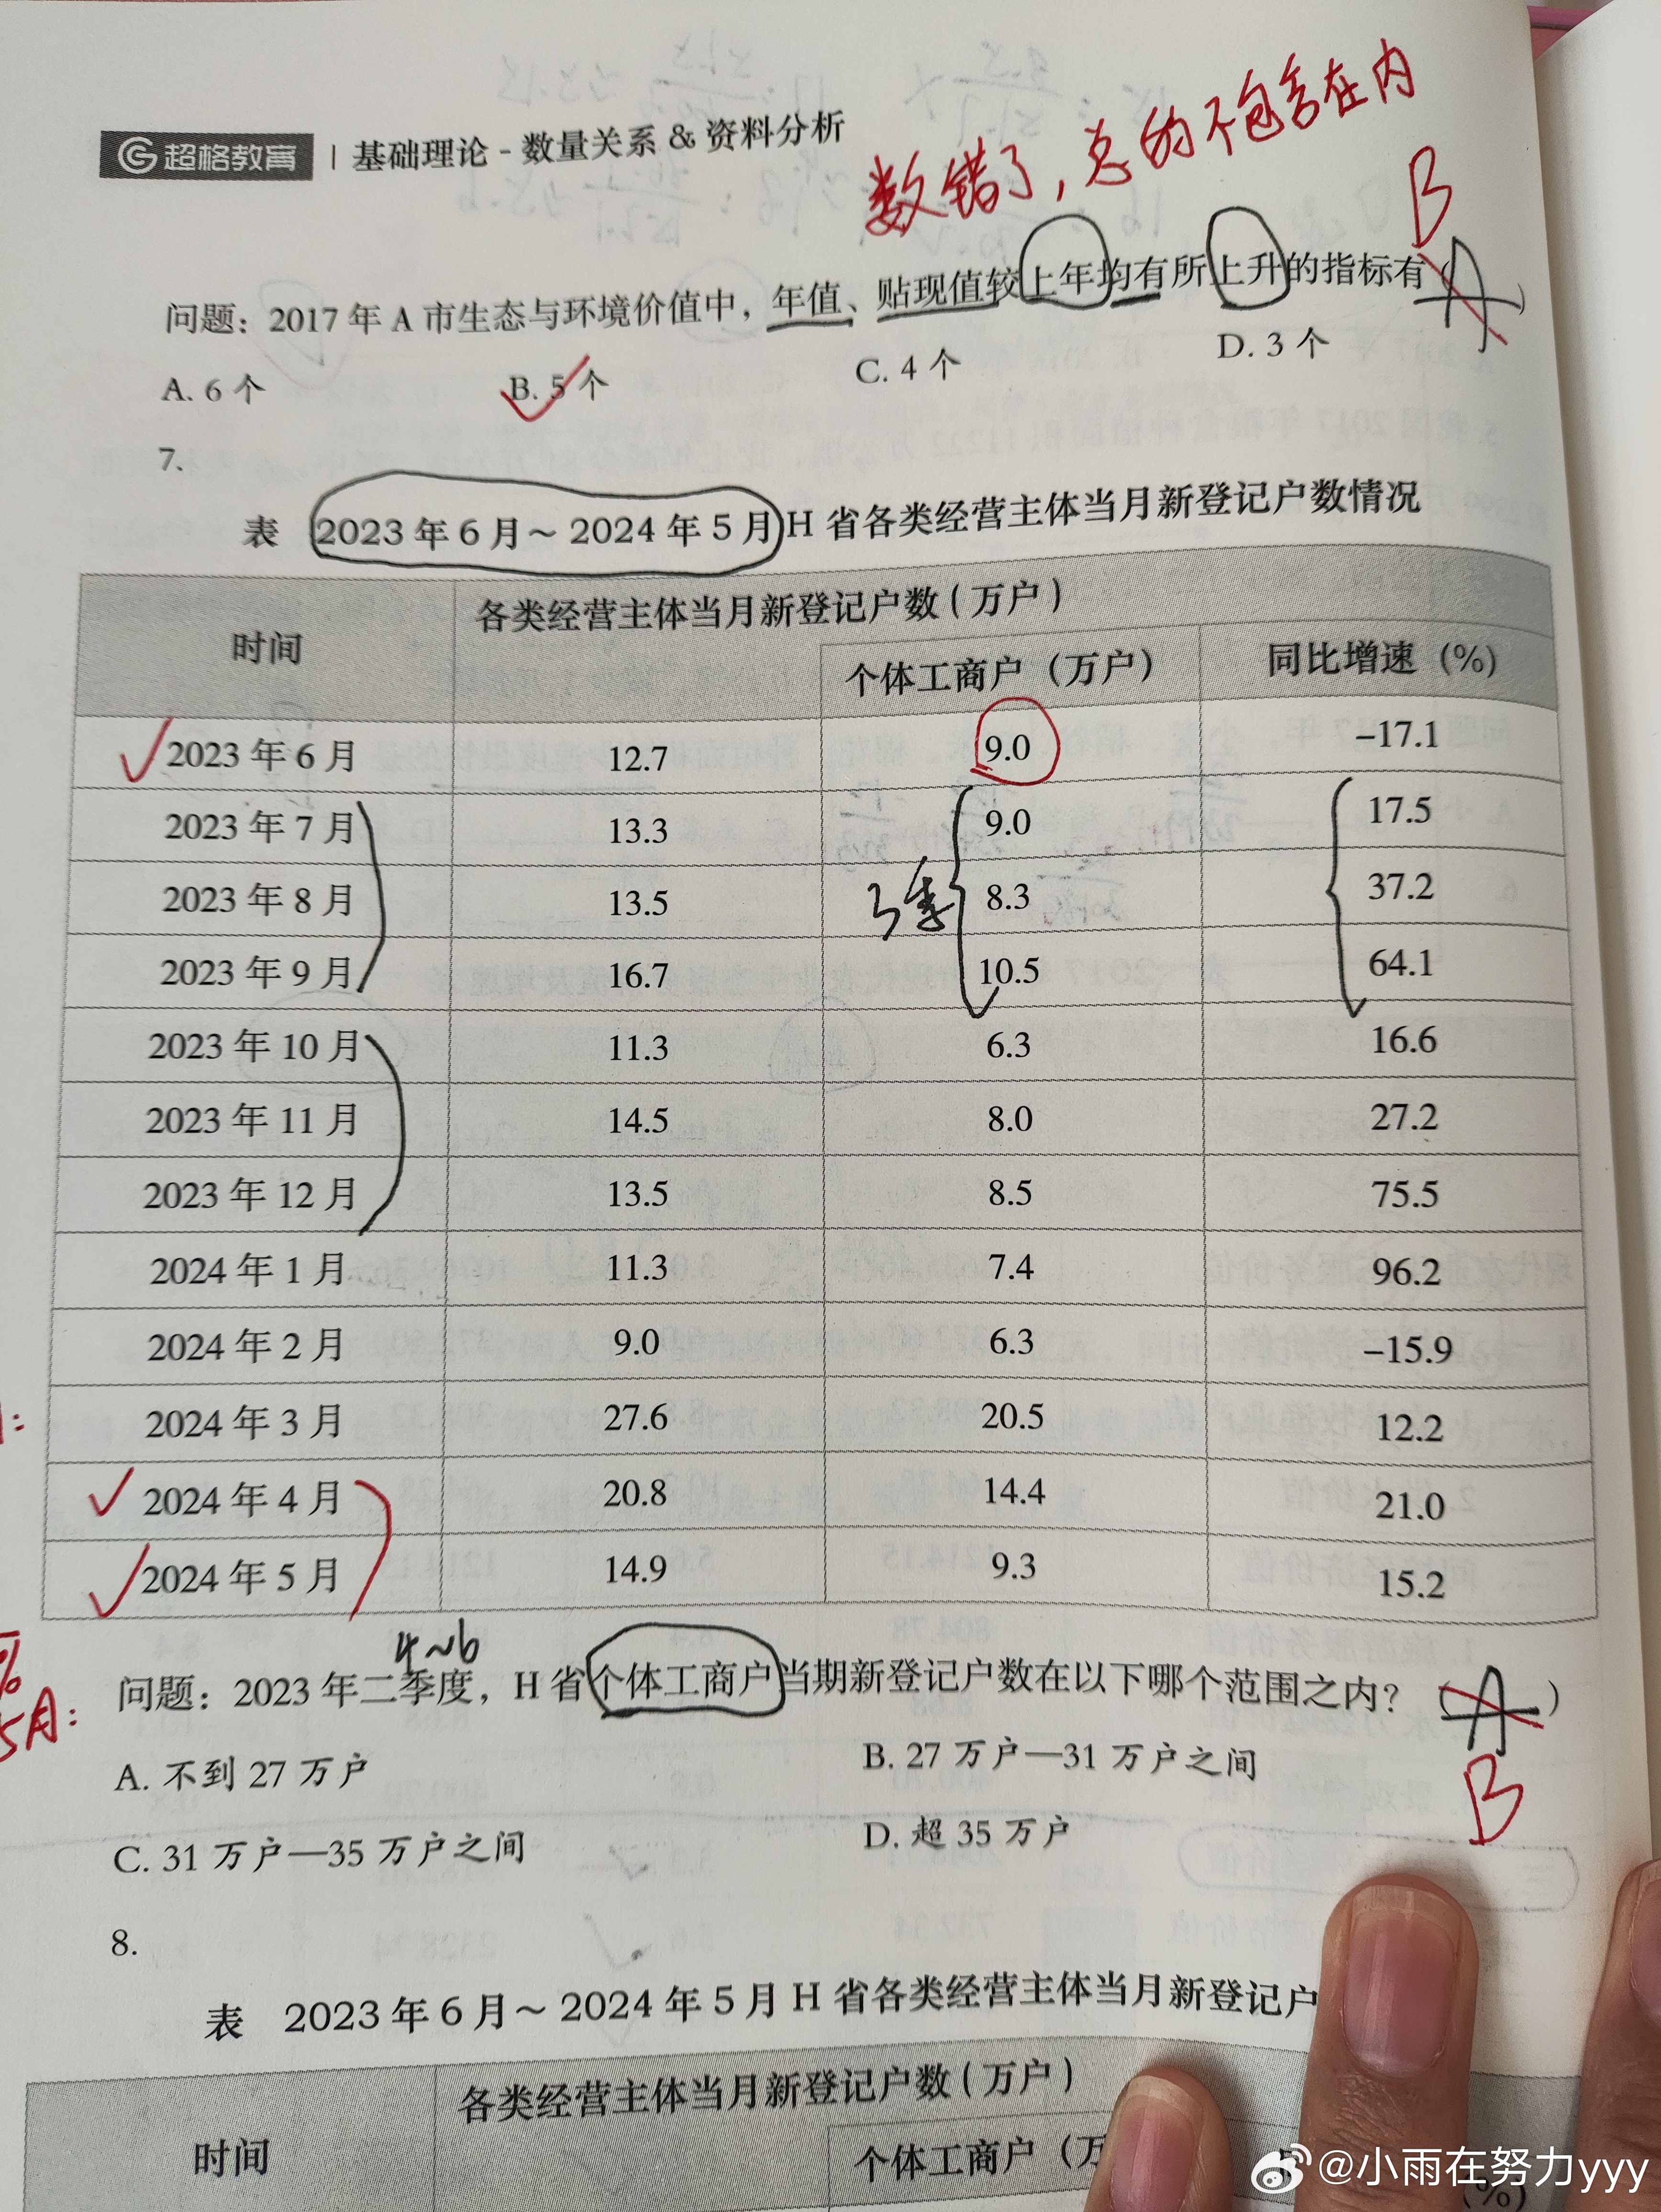 超格教育 | 基础理论 - 数量关系 & 资料分析
数错了,总的不包含在内
B
问题：2017 年 A 市生态与环境价值中，年值、贴现值较上年均有所上升的指标有（ A ）
A. 6 个 B. 5 个 C. 4 个 D. 3 个
7.
表 2023 年 6 月～ 2024 年 5 月 H 省各类经营主体当月新登记户数情况
时间 各类经营主体当月新登记户数（万户）
个体工商户（万户） 同比增速（%）
2023 年 6 月 12.7 9.0 -17.1
2023 年 7 月 13.3 9.0 17.5
2023 年 8 月 13.5 8.3 37.2
3季
2023 年 9 月 16.7 10.5 64.1
2023 年 10 月 11.3 6.3 16.6
2023 年 11 月 14.5 8.0 27.2
2023 年 12 月 13.5 8.5 75.5
2024 年 1 月 11.3 7.4 96.2
2024 年 2 月 9.0 6.3 -15.9
2024 年 3 月 27.6 20.5 12.2
2024 年 4 月 20.8 14.4 21.0
2024 年 5 月 14.9 9.3 15.2
4~6
问题：2023 年二季度，H 省个体工商户当期新登记户数在以下哪个范围之内？（ A ）
5月:
A. 不到 27 万户 B. 27 万户—31 万户之间
B
C. 31 万户—35 万户之间 D. 超 35 万户
8.
表 2023 年 6 月～ 2024 年 5 月 H 省各类经营主体当月新登记户
时间 各类经营主体当月新登记户数（万户）
个体工商户（万 (%)
@小雨在努力yyy